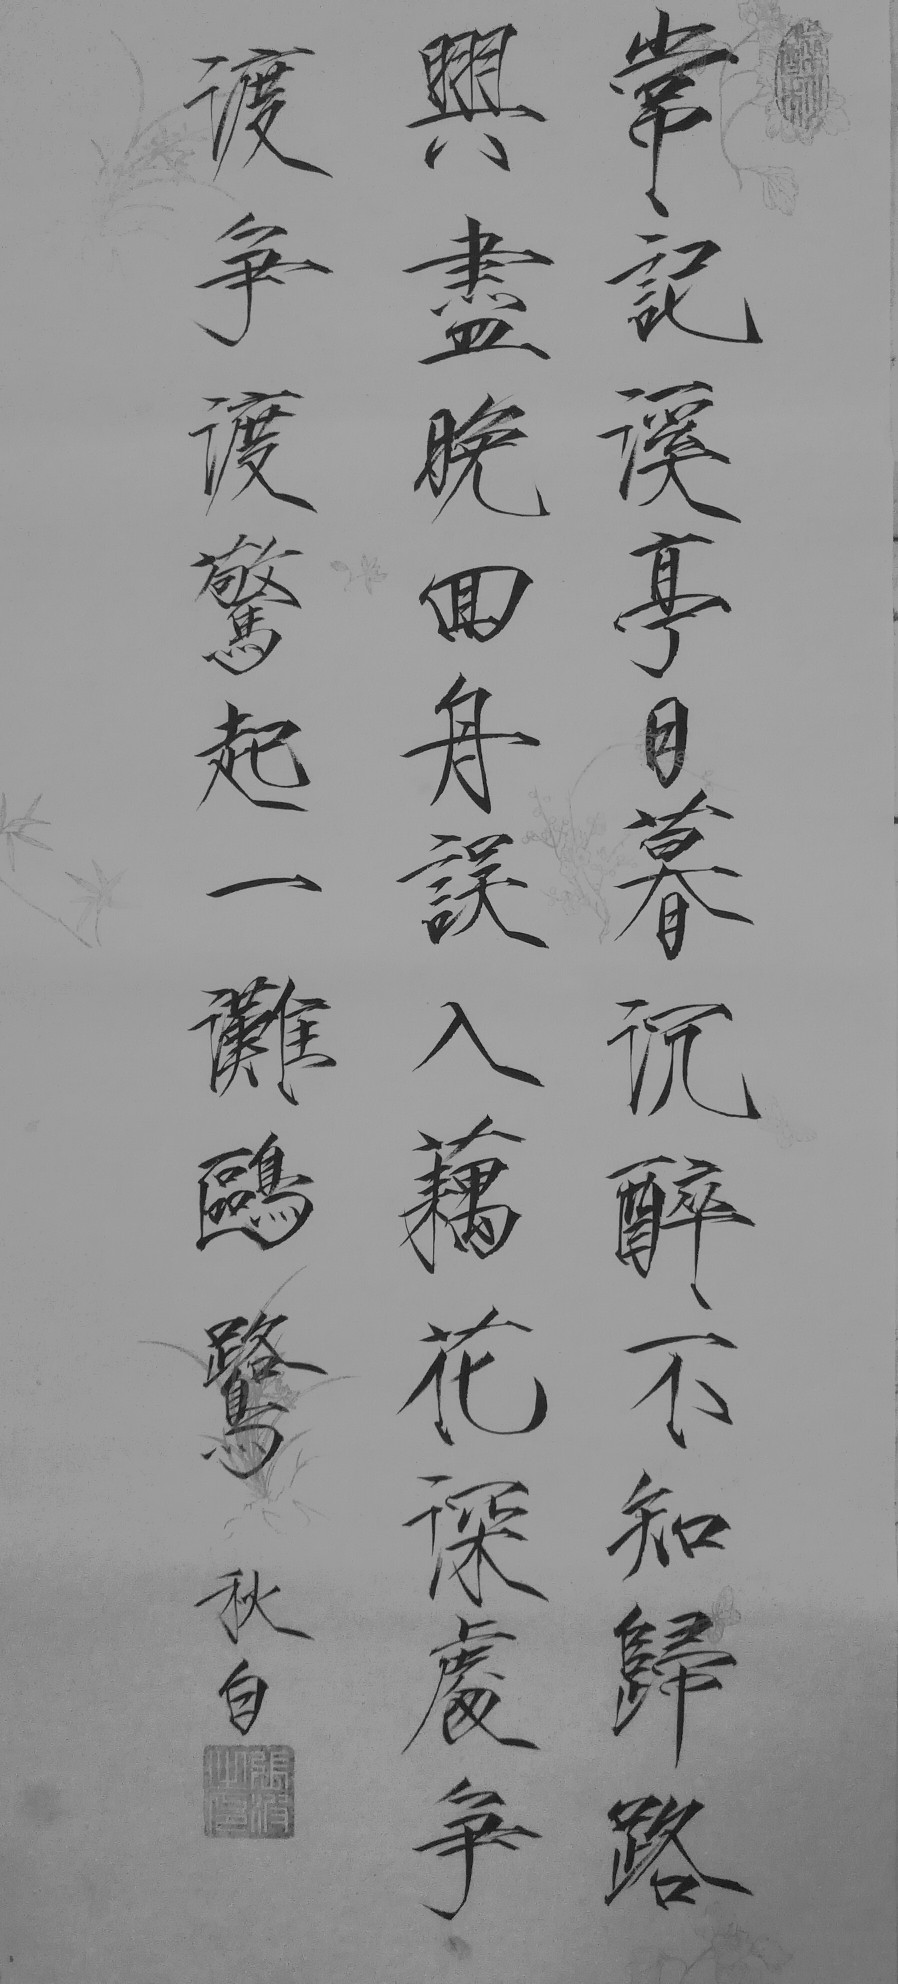 常記溪亭日暮沉醉不知歸路
興盡晚回舟誤入藕花深處爭
渡爭渡驚起一灘鷗鷺
秋白